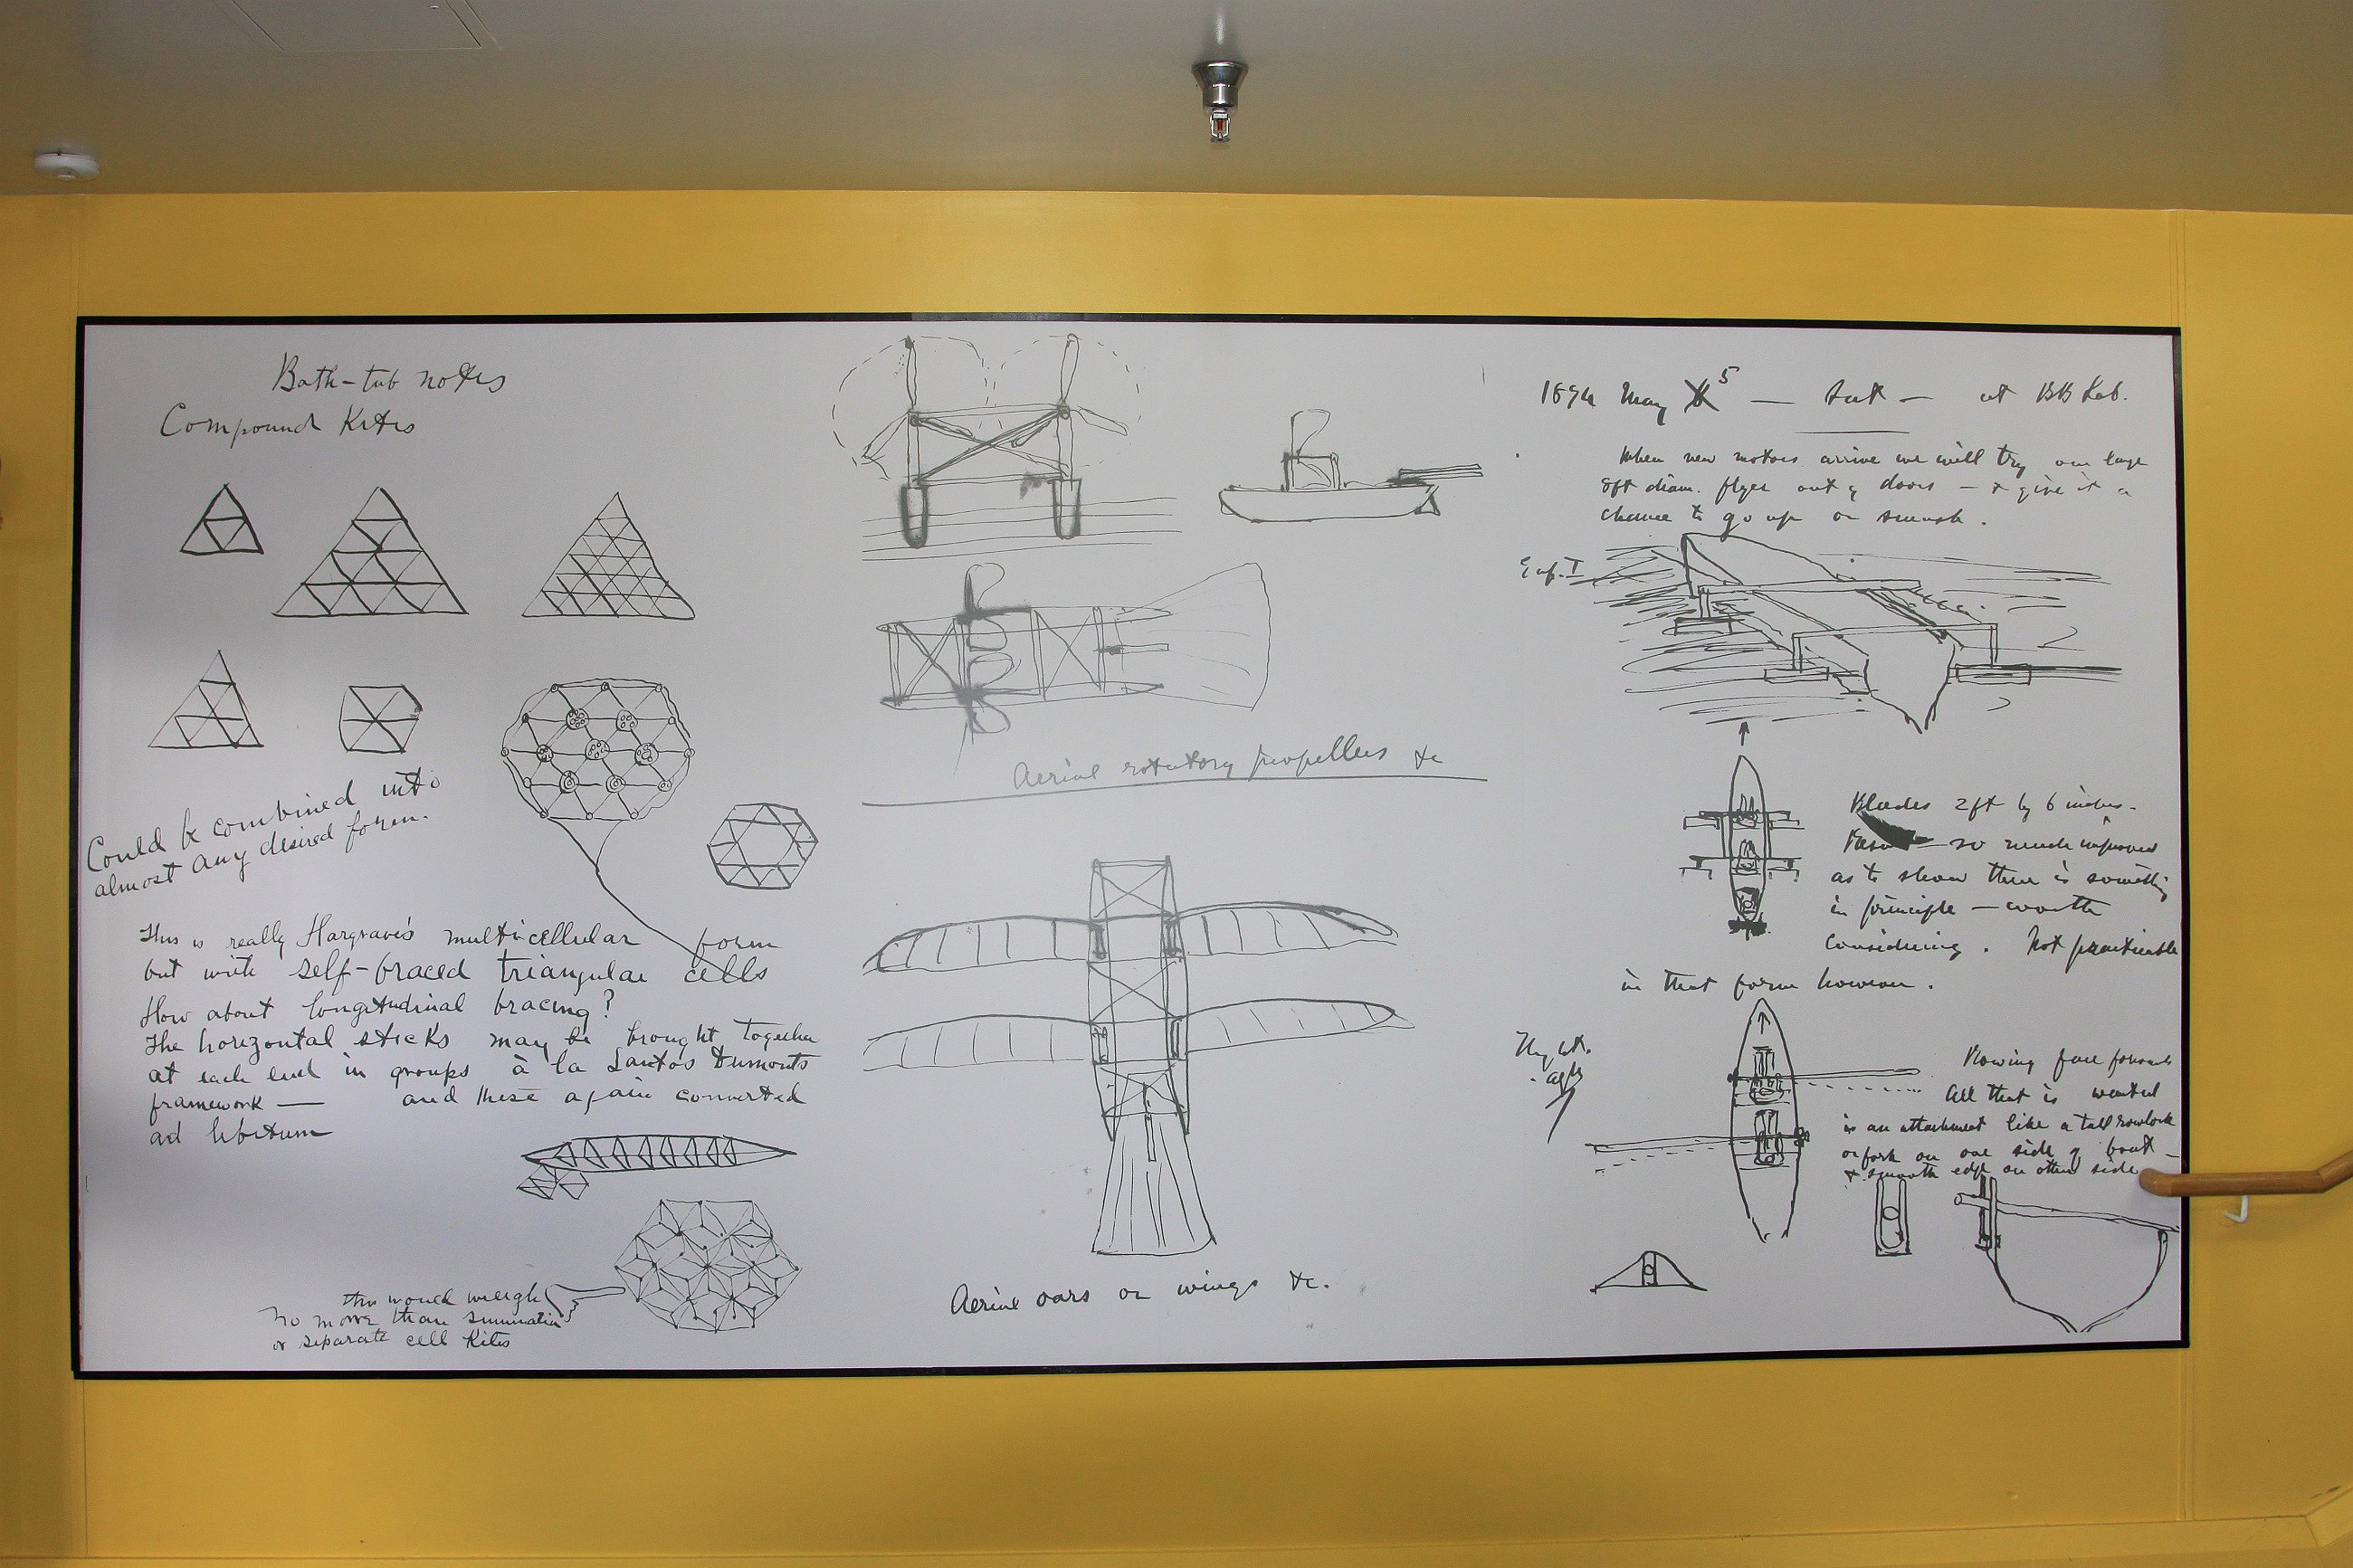 Bath-tub notes
Compound Kites
Could be combined into
almost any desired form.
This is really Hargrave's multicellular form
but with self-braced triangular cells
How about longitudinal bracing?
The horizontal sticks may be brought together
at each end in groups à la Santos Dumonts
framework — and these again converted
ad libitum
this would weigh
no more than summation
or separate cell Kites
Aerial rotatory propellers &c
Aerial oars or wings &c.
1894 May 5 — Sat — at BB Lab.
When new motors arrive we will try our large
8ft diam. flyer out of doors — & give it a
chance to go up or smash.
Exp. I
Blades 2 ft by 6 inches —
so much improved
as to show there is something
in principle — worth
considering. Not practicable
in that form however.
Rowing face forward
All that is wanted
is an attachment like a tall rowlock
or fork on one side of boat —
& smooth edge on other side